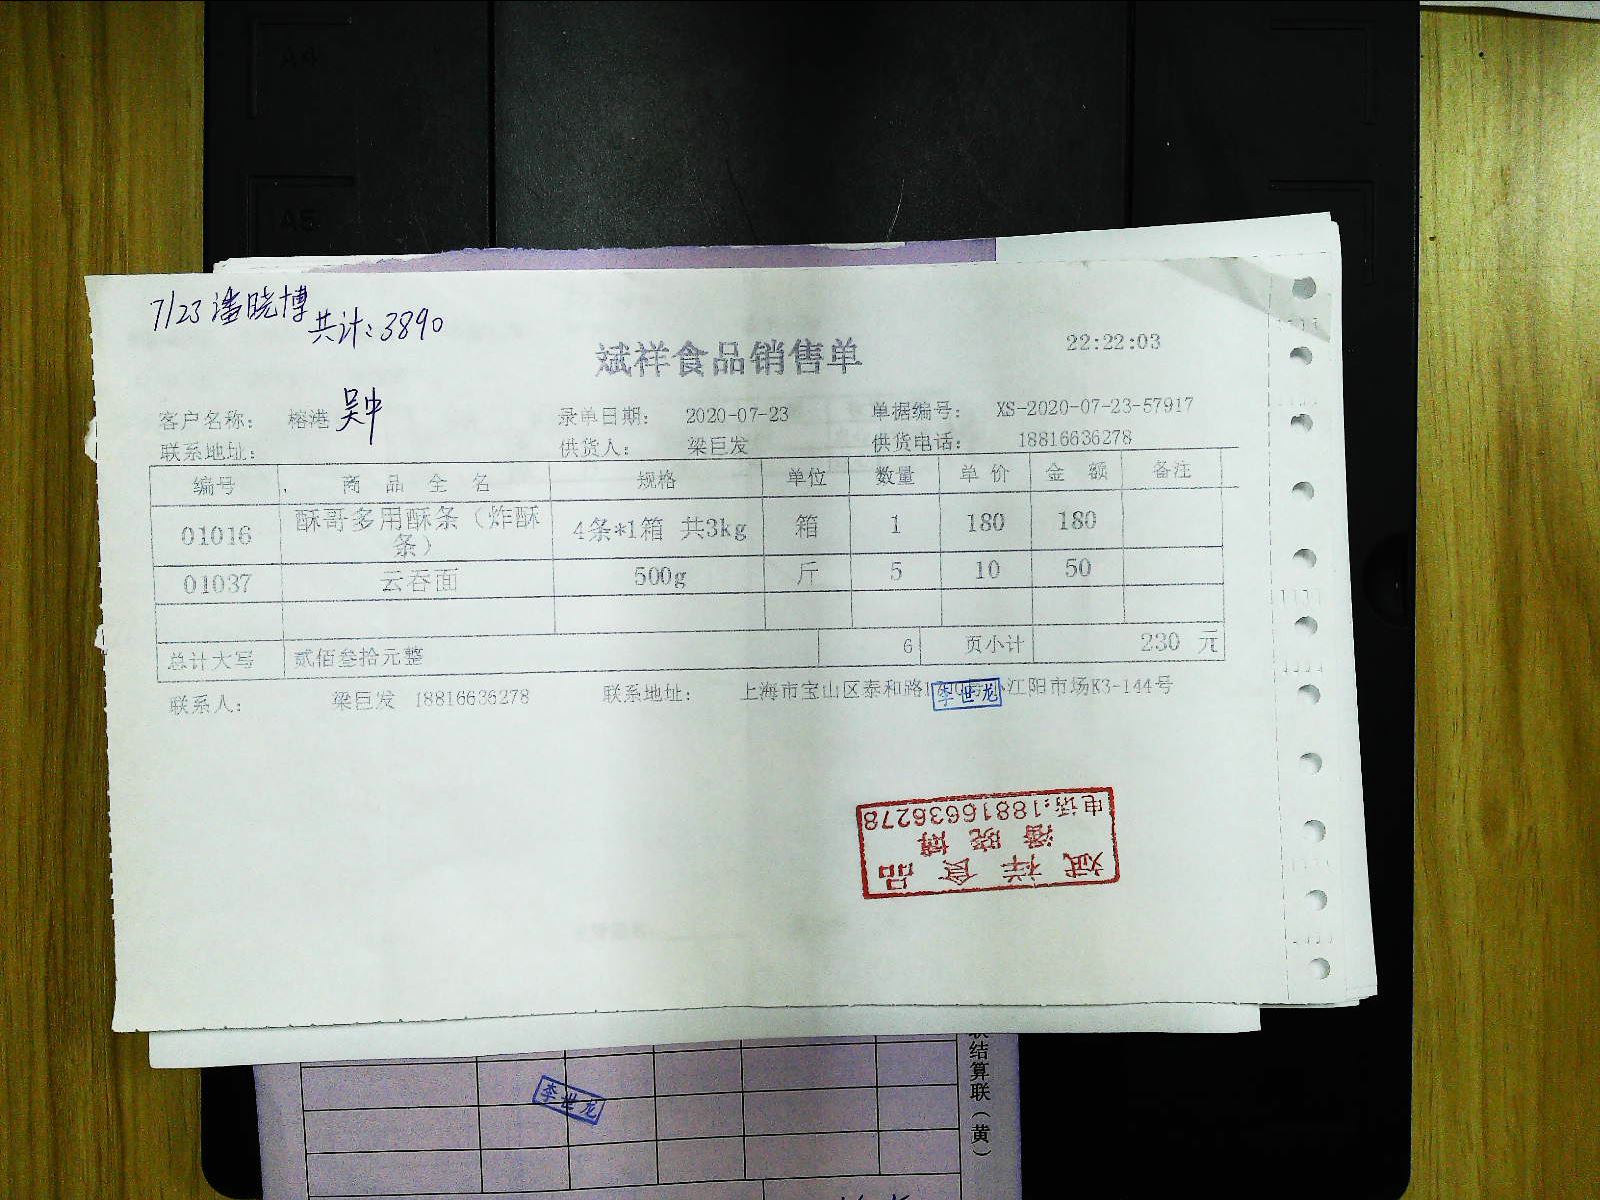 7/23 潘晓博
共计：3890
斌祥食品销售单
22:22:03
客户名称： 榕港 吴中 录单日期： 2020-07-23 单据编号： XS-2020-07-23-57917
联系地址： 供货人： 梁巨发 供货电话： 18816636278
编号 商品全名 规格 单位 数量 单价 金额 备注
01016 酥哥多用酥条（炸酥条） 4条*1箱 共3kg 箱 1 180 180
01037 云吞面 500g 斤 5 10 50
总计大写 贰佰叁拾元整 6 页小计 230 元
联系人： 梁巨发 18816636278 联系地址： 上海市宝山区泰和路 江阳市场K3-144号
李世龙
斌祥食品
潘晓博
电话:18816636278
李世龙
结算联（黄）